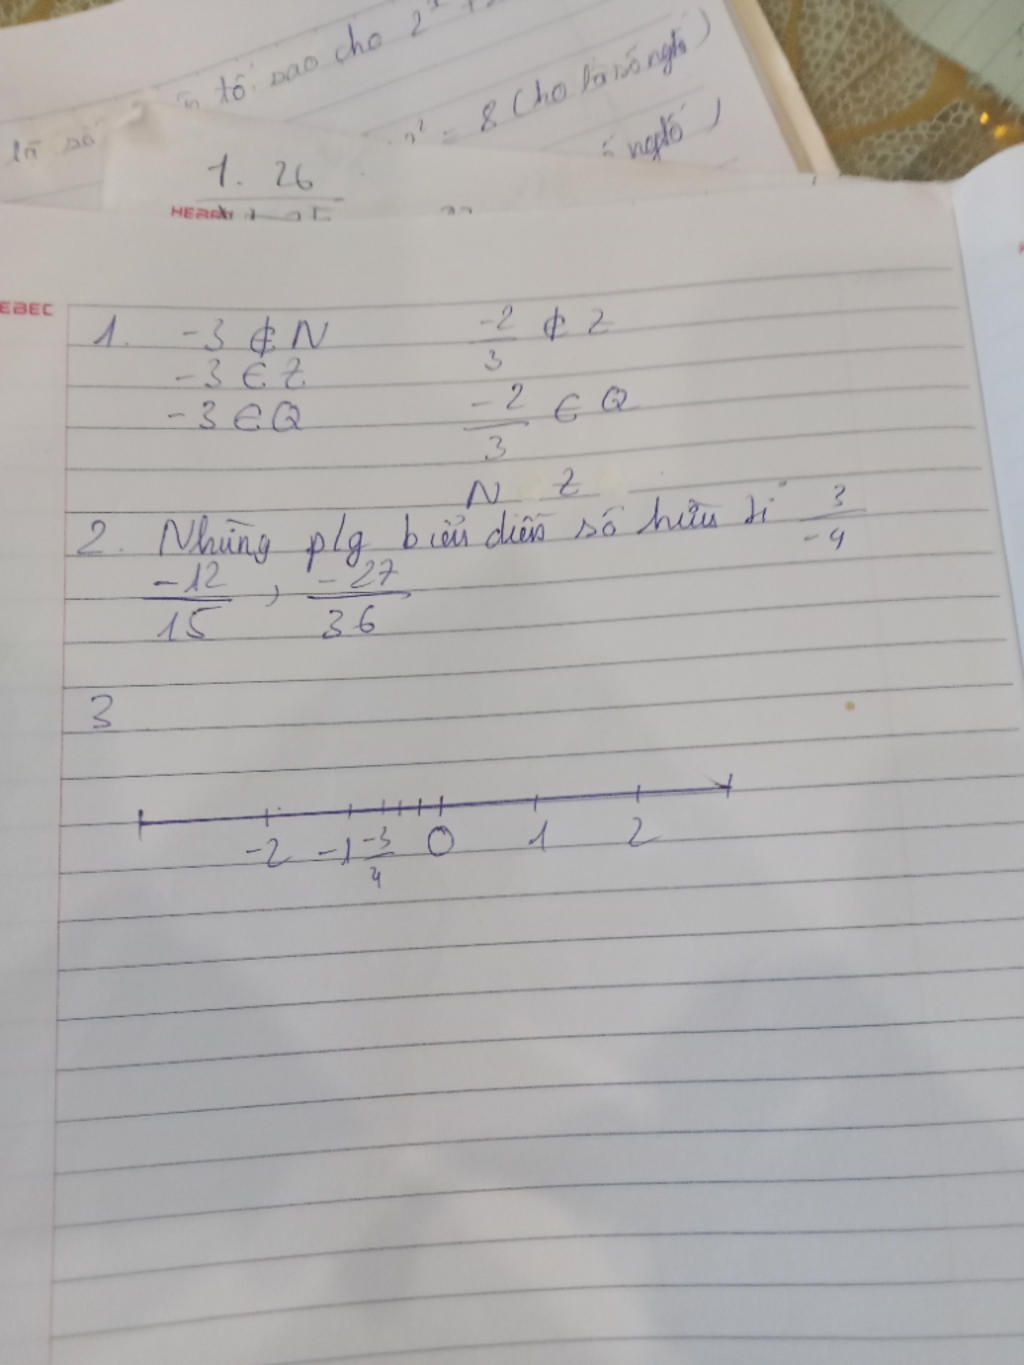 tố sao cho 2
là số
= 8 (cho là số ngtố)
ngtố)
1. 26
EBEC
1. -3 ∉ N -2/3 ∉ Z
-3 ∈ Z
-3 ∈ Q -2/3 ∈ Q
N Z
2. Những p/g biểu diễn số hữu tỉ 3/-4
-12/15, -27/36
3
-2 -1 -3/4 0 1 2